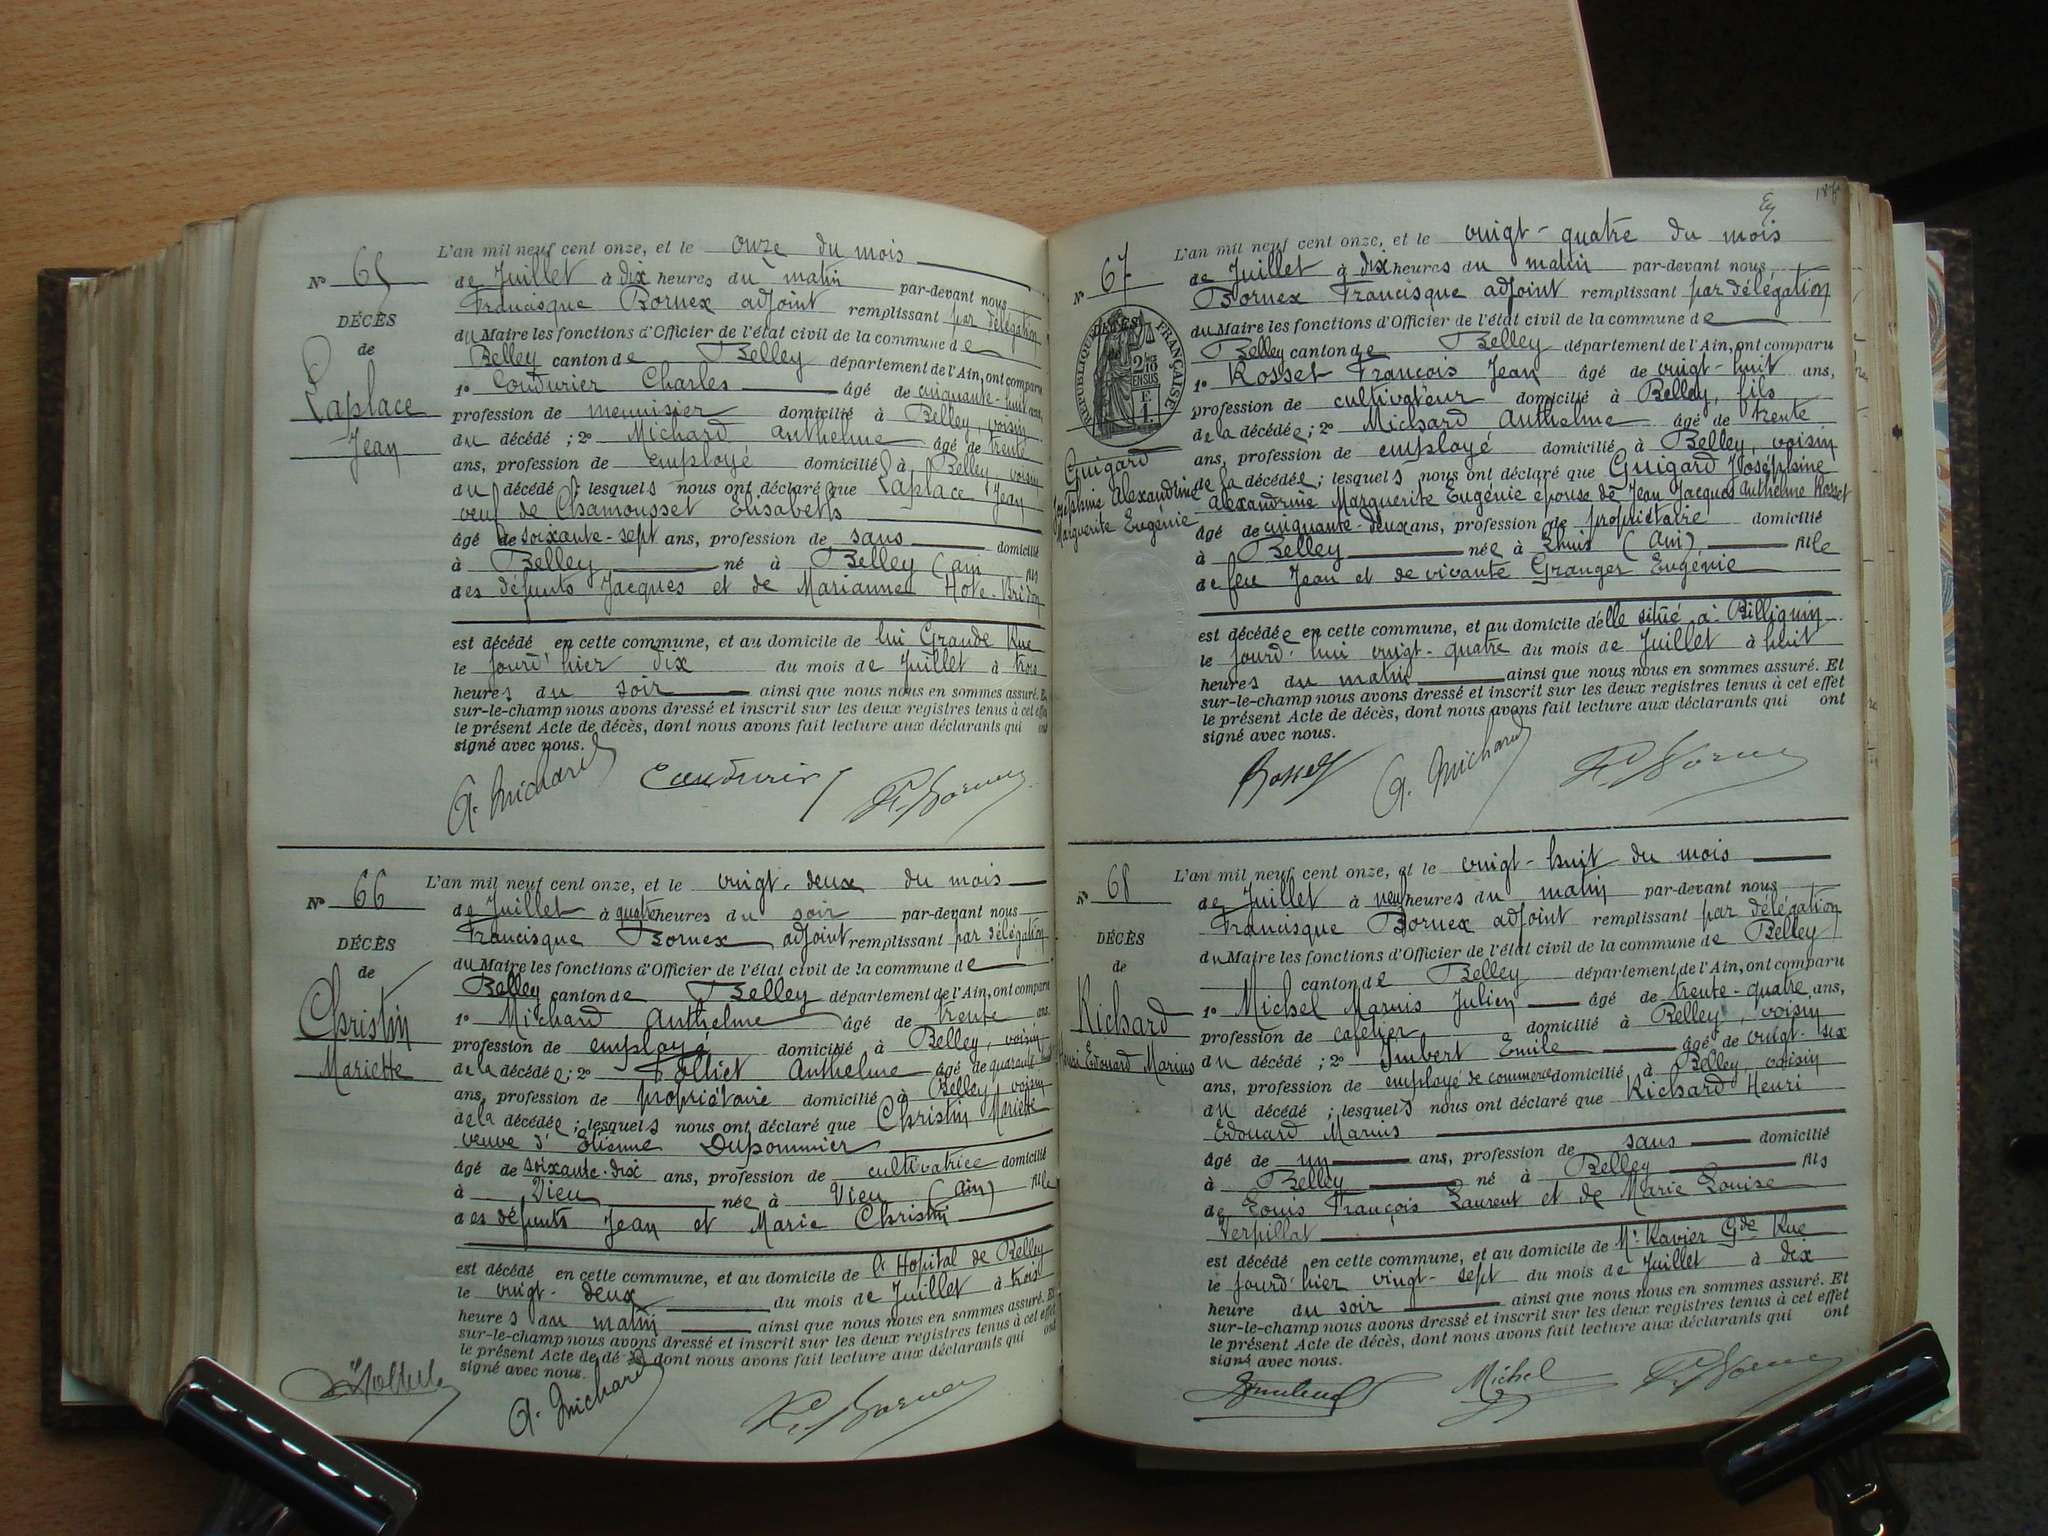 L'an mil neuf cent onze, et le onze du mois
N° 65
de Juillet à dix heures du matin par-devant nous
Francisque Bornex adjoint remplissant par délégation
DÉCÈS
du Maire les fonctions d'Officier de l'état civil de la commune de
de
Belley canton de Belley département de l'Ain, ont comparu
1° Coudurier Charles âgé de cinquante-huit ans,
Laplace
profession de menuisier domicilié à Belley, voisin
Jean
du décédé ; 2° Michard Anthelme âgé de trente
ans, profession de employé domicilié à Belley, voisin
du décédé ; lesquels nous ont déclaré que Laplace Jean
veuf de Chamousset Elisabeth
âgé de soixante-sept ans, profession de sans domicilié
à Belley né à Belley (ain fils
des défunts Jacques et de Marianne Hote-Bridon
est décédé en cette commune, et au domicile de lui Grande Rue
le jourd'hier dix du mois de Juillet à trois
heures du soir ainsi que nous nous en sommes assuré. Et
sur-le-champ nous avons dressé et inscrit sur les deux registres tenus à cet effet
le présent Acte de décès, dont nous avons fait lecture aux déclarants qui ont
signé avec nous.
A. Michard Coudurier F. Bornex
L'an mil neuf cent onze, et le vingt-deux du mois
N° 66
de Juillet à quatre heures du soir par-devant nous
Francisque Bornex adjoint remplissant par délégation
DÉCÈS
du Maire les fonctions d'Officier de l'état civil de la commune de
de
Belley canton de Belley département de l'Ain, ont comparu
Christin
1° Michard Anthelme âgé de trente ans,
profession de employé domicilié à Belley, voisin
Mariette
de la décédée ; 2° Folliet Anthelme âgé de quarante
ans, profession de propriétaire domicilié à Belley, voisin
de la décédée ; lesquels nous ont déclaré que Christin Mariette
veuve d'Etienne Dupommier
âgé de soixante-dix ans, profession de cultivatrice domicilié
à Vieu née à Vieu (ain) fille
des défunts Jean et Marie Christin
est décédé en cette commune, et au domicile de l'Hopital de Belley
le vingt-deux du mois de Juillet à trois
heures du matin ainsi que nous nous en sommes assuré. Et
sur-le-champ nous avons dressé et inscrit sur les deux registres tenus à cet effet
le présent Acte de dé dont nous avons fait lecture aux déclarants qui ont
signé avec nous.
A. Michard F. Bornex
L'an mil neuf cent onze, et le vingt-quatre du mois
N° 67
de Juillet à dix heures du matin par-devant nous
Bornex Francisque adjoint remplissant par délégation
du Maire les fonctions d'Officier de l'état civil de la commune de
RÉPUBLIQUE FRANÇAISE
2/10 EN SUS
Belley canton de Belley département de l'Ain, ont comparu
1° Rosset François Jean âgé de vingt-huit ans,
profession de cultivateur domicilié à Belley, fils
de la décédée ; 2° Michard Anthelme âgé de trente
ans, profession de employé domicilié à Belley, voisin
Guigard
Joséphine Alexandrine
Marguerite Eugénie
de la décédée ; lesquels nous ont déclaré que Guigard Joséphine
Alexandrine Marguerite Eugénie épouse de Jean Jacques Anthelme Rosset
âgé de cinquante-deux ans, profession de propriétaire domicilié
à Belley née à Lhuis (Ain) fille
de feu Jean et de vivante Granger Eugénie
est décédée en cette commune, et au domicile d'elle situé à Billignin
le jourd'hui vingt-quatre du mois de Juillet à huit
heures du matin ainsi que nous nous en sommes assuré. Et
sur-le-champ nous avons dressé et inscrit sur les deux registres tenus à cet effet
le présent Acte de décès, dont nous avons fait lecture aux déclarants qui ont
signé avec nous.
Rosset A. Michard F. Bornex
L'an mil neuf cent onze, et le vingt-huit du mois
N° 68
de Juillet à neuf heures du matin par-devant nous
Francisque Bornex adjoint remplissant par délégation
DÉCÈS
du Maire les fonctions d'Officier de l'état civil de la commune de Belley
de
canton de Belley département de l'Ain, ont comparu
Richard
1° Michel Marius Julien âgé de trente-quatre ans,
profession de cafetier domicilié à Belley, voisin
Henri Edouard Marius
du décédé ; 2° Imbert Emile âgé de vingt-six
ans, profession de employé de commerce domicilié à Belley voisin
du décédé ; lesquels nous ont déclaré que Richard Henri
Edouard Marius
âgé de un ans, profession de sans domicilié
à Belley né à Belley fils
de Louis François Laurent et de Marie Louise
Verpillat
est décédé en cette commune, et au domicile de Mr Ravier Gde Rue
le jourd'hier vingt-sept du mois de Juillet à dix
heure du soir ainsi que nous nous en sommes assuré. Et
sur-le-champ nous avons dressé et inscrit sur les deux registres tenus à cet effet
le présent Acte de décès, dont nous avons fait lecture aux déclarants qui ont
signé avec nous.
Michel F. Bornex